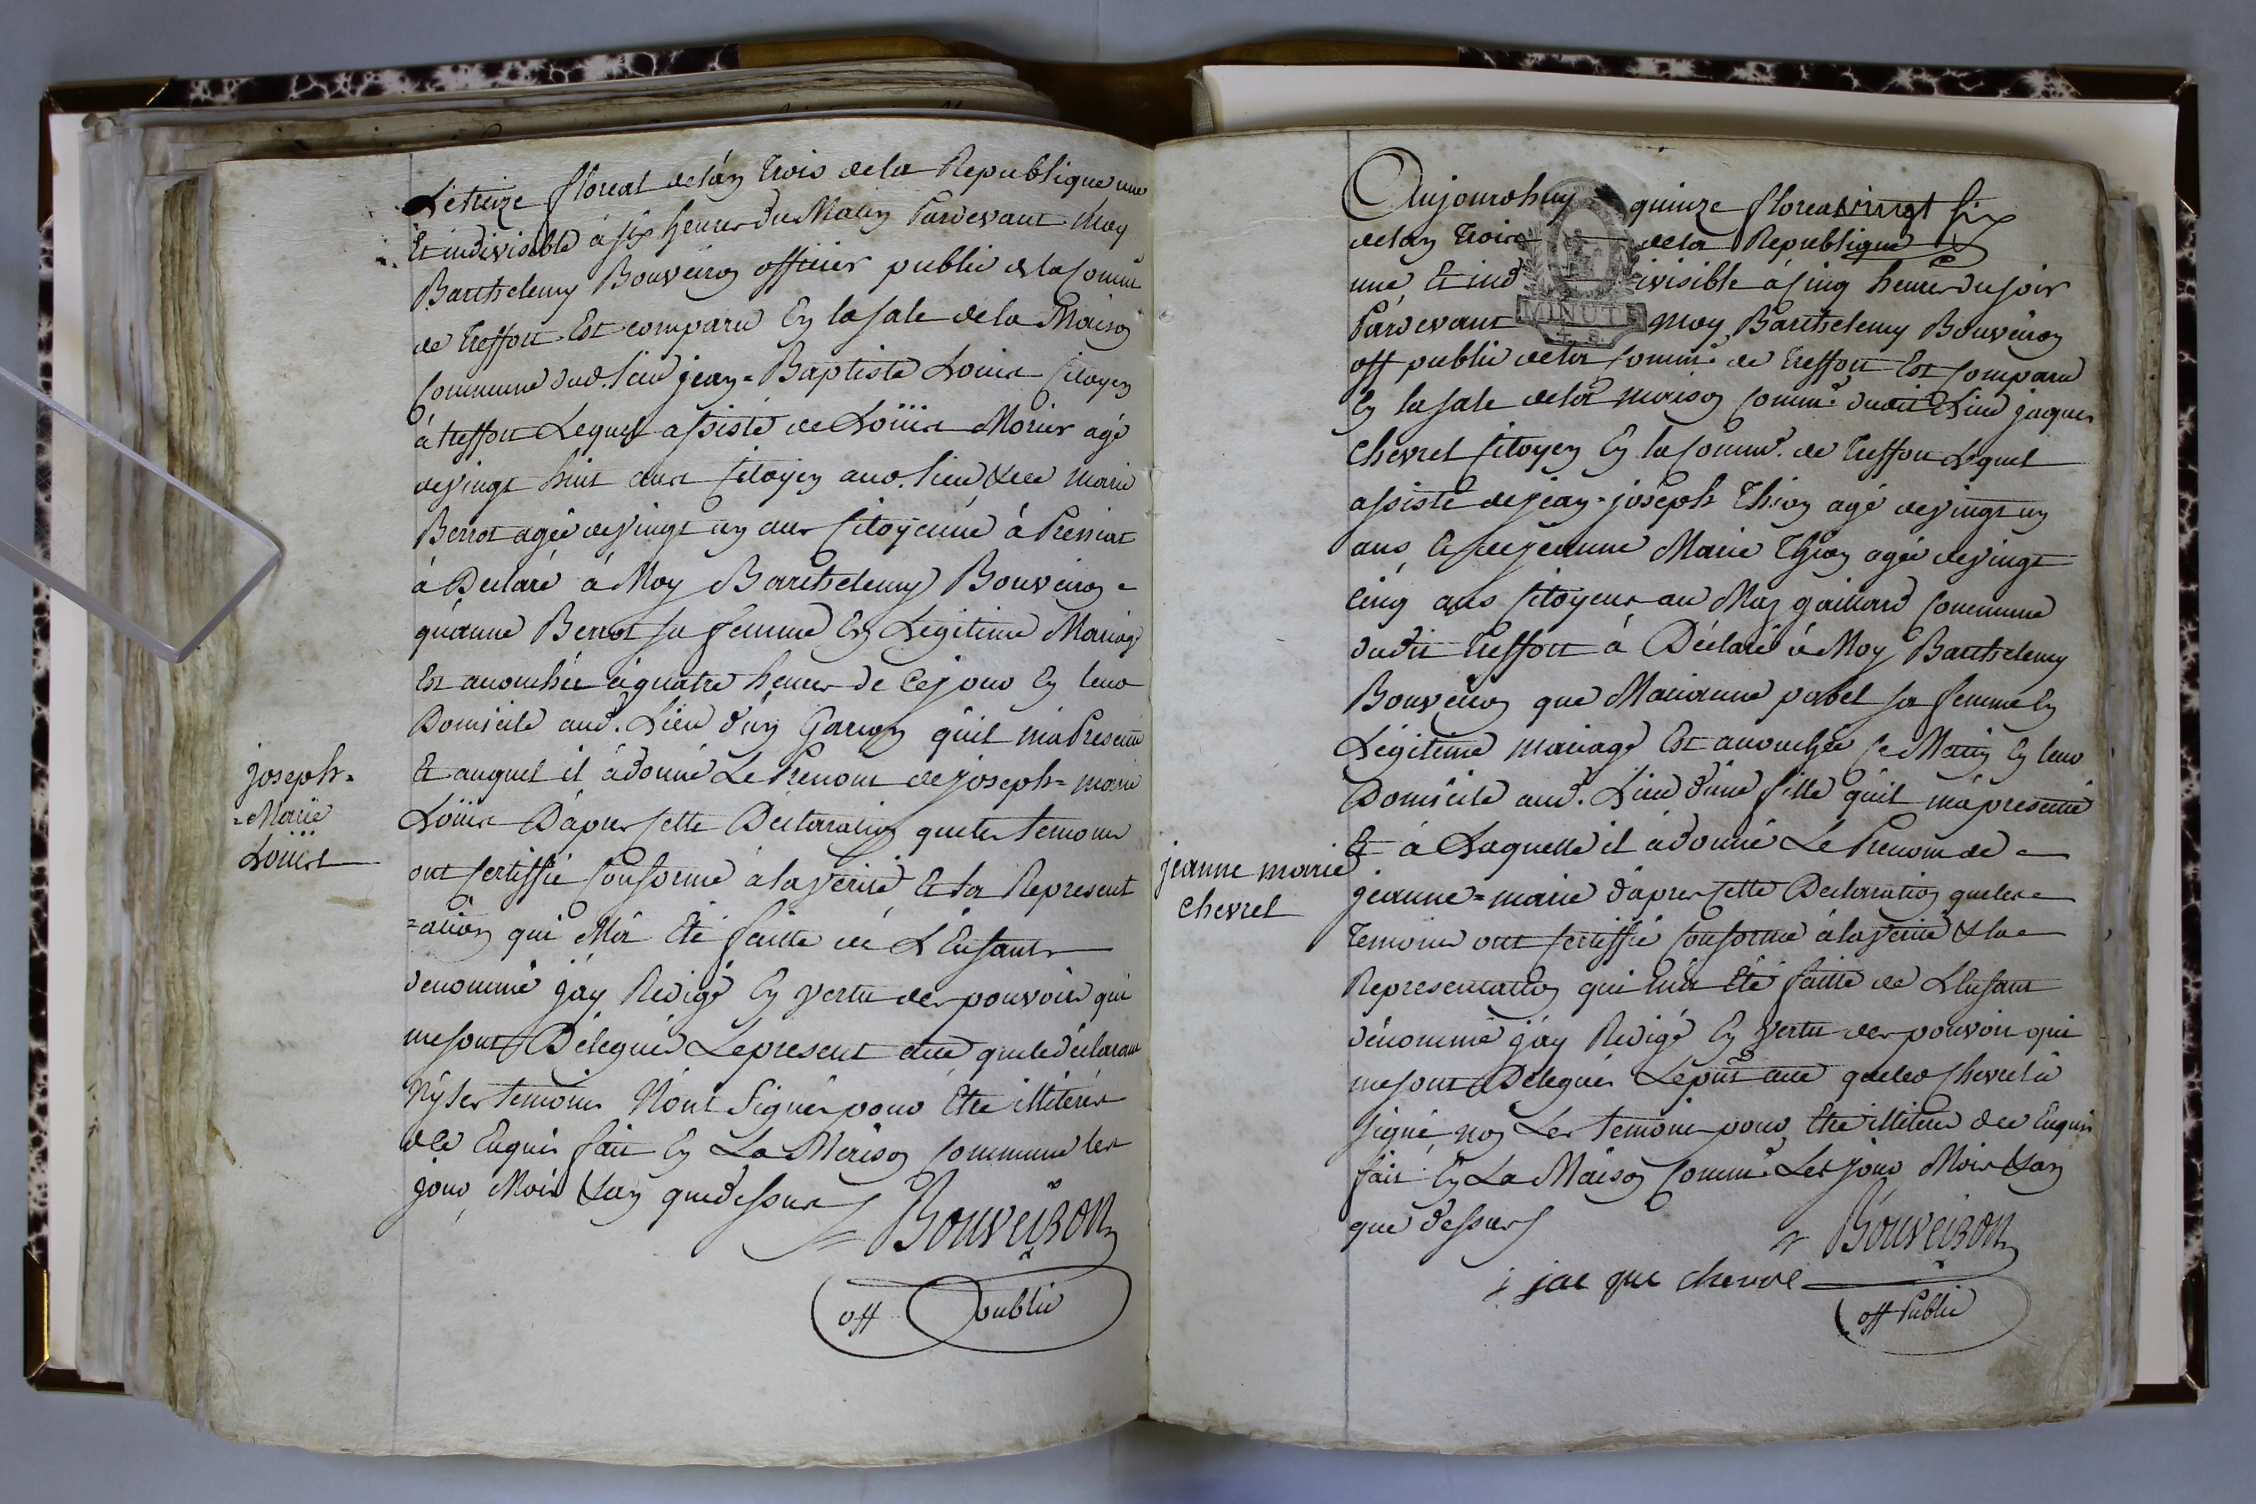 Le treize floreal de lán trois de la Republique une
Et indivisible à six heures du Matin Pardevant Moy
Barthelemy Bouveiron officier public de la Comune
de treffort Est comparu En la sale de la Maison
Commune dud. Lieu jean=Baptiste Loüis Citoyen
à treffort Lequel assisté de Loüis Morier agé
de vingt huit ans Citoyen aud. Lieu & de marie
Berrot agée de vingt un ans Citoyenne à Pressiat
à Declaré à Moy Barthelemy Bouveiron
quánne Berrot sa femme En Legitime Mariage
Est accouchée à quatre heures de Ce jour En leur
Domicile aud. Lieu d'un Garçon quil má Presenté
Et auquel il à donné Le Prenom de joseph=marie
Loüis D'aprés cette Déclaration que les temoins
ont Certiffié Conforme à la verité, Et la Represent
=ation qui Má Eté faitte de L'Enfant
dénommé jáy Redigé En vertu des pouvoirs qui
me sont Délegués Le present acte que le déclarant
Ny les temoins N'ont Signés pour Etre illiterés
de ce Enquis fait En La Maison Commune les
jour, Mois & an que dessus
Bouveiron
off public
joseph=
=Marie
Loüis
Aujourdhuy quinze floreal vingt six
de lan trois de la Republique
une Et indivisible à cinq heures du soir
Pardevant moy Barthelemy Bouveiron
MINUTE
off public de la Comm.e de treffort Est Comparu
En la sale de la maison Comm.e dudit Lieu jaques
Chevrel Citoyen En la Comm.e de Treffort Lequel
assisté de jean=joseph Thion agé de vingt un
ans, & de jeanne Marie Thion agée de vingt
Cinq ans Citoyens au Maz gaillard Commune
dudit treffort à Déclaré à Moy Barthelemy
Bouveiron que Marianne pobel sa femme En
Légitime mariage Est accouchée Ce Matin En leur
Domicile aud. Lieu d'une fille quil má presenté
Et à Laquelle il à donné Le Prenom de
jeanne=marie d'aprés cette Déclaration que les
Temoins ont Certiffié Conforme à la verité & la
Representation qui má Eté faitte de L'Enfant
dénommé jáy Redigé En vertu des pouvoirs qui
me sont Délegués Le pnt acte que led Chevrel à
signé non Les temoins pour Etre illiterés de ce Enquis
fait En La Maison Comm.e Les jour Mois & an
que dessus
Bouveiron
jac que chevrel
off Public
jeanne marie
chevrel